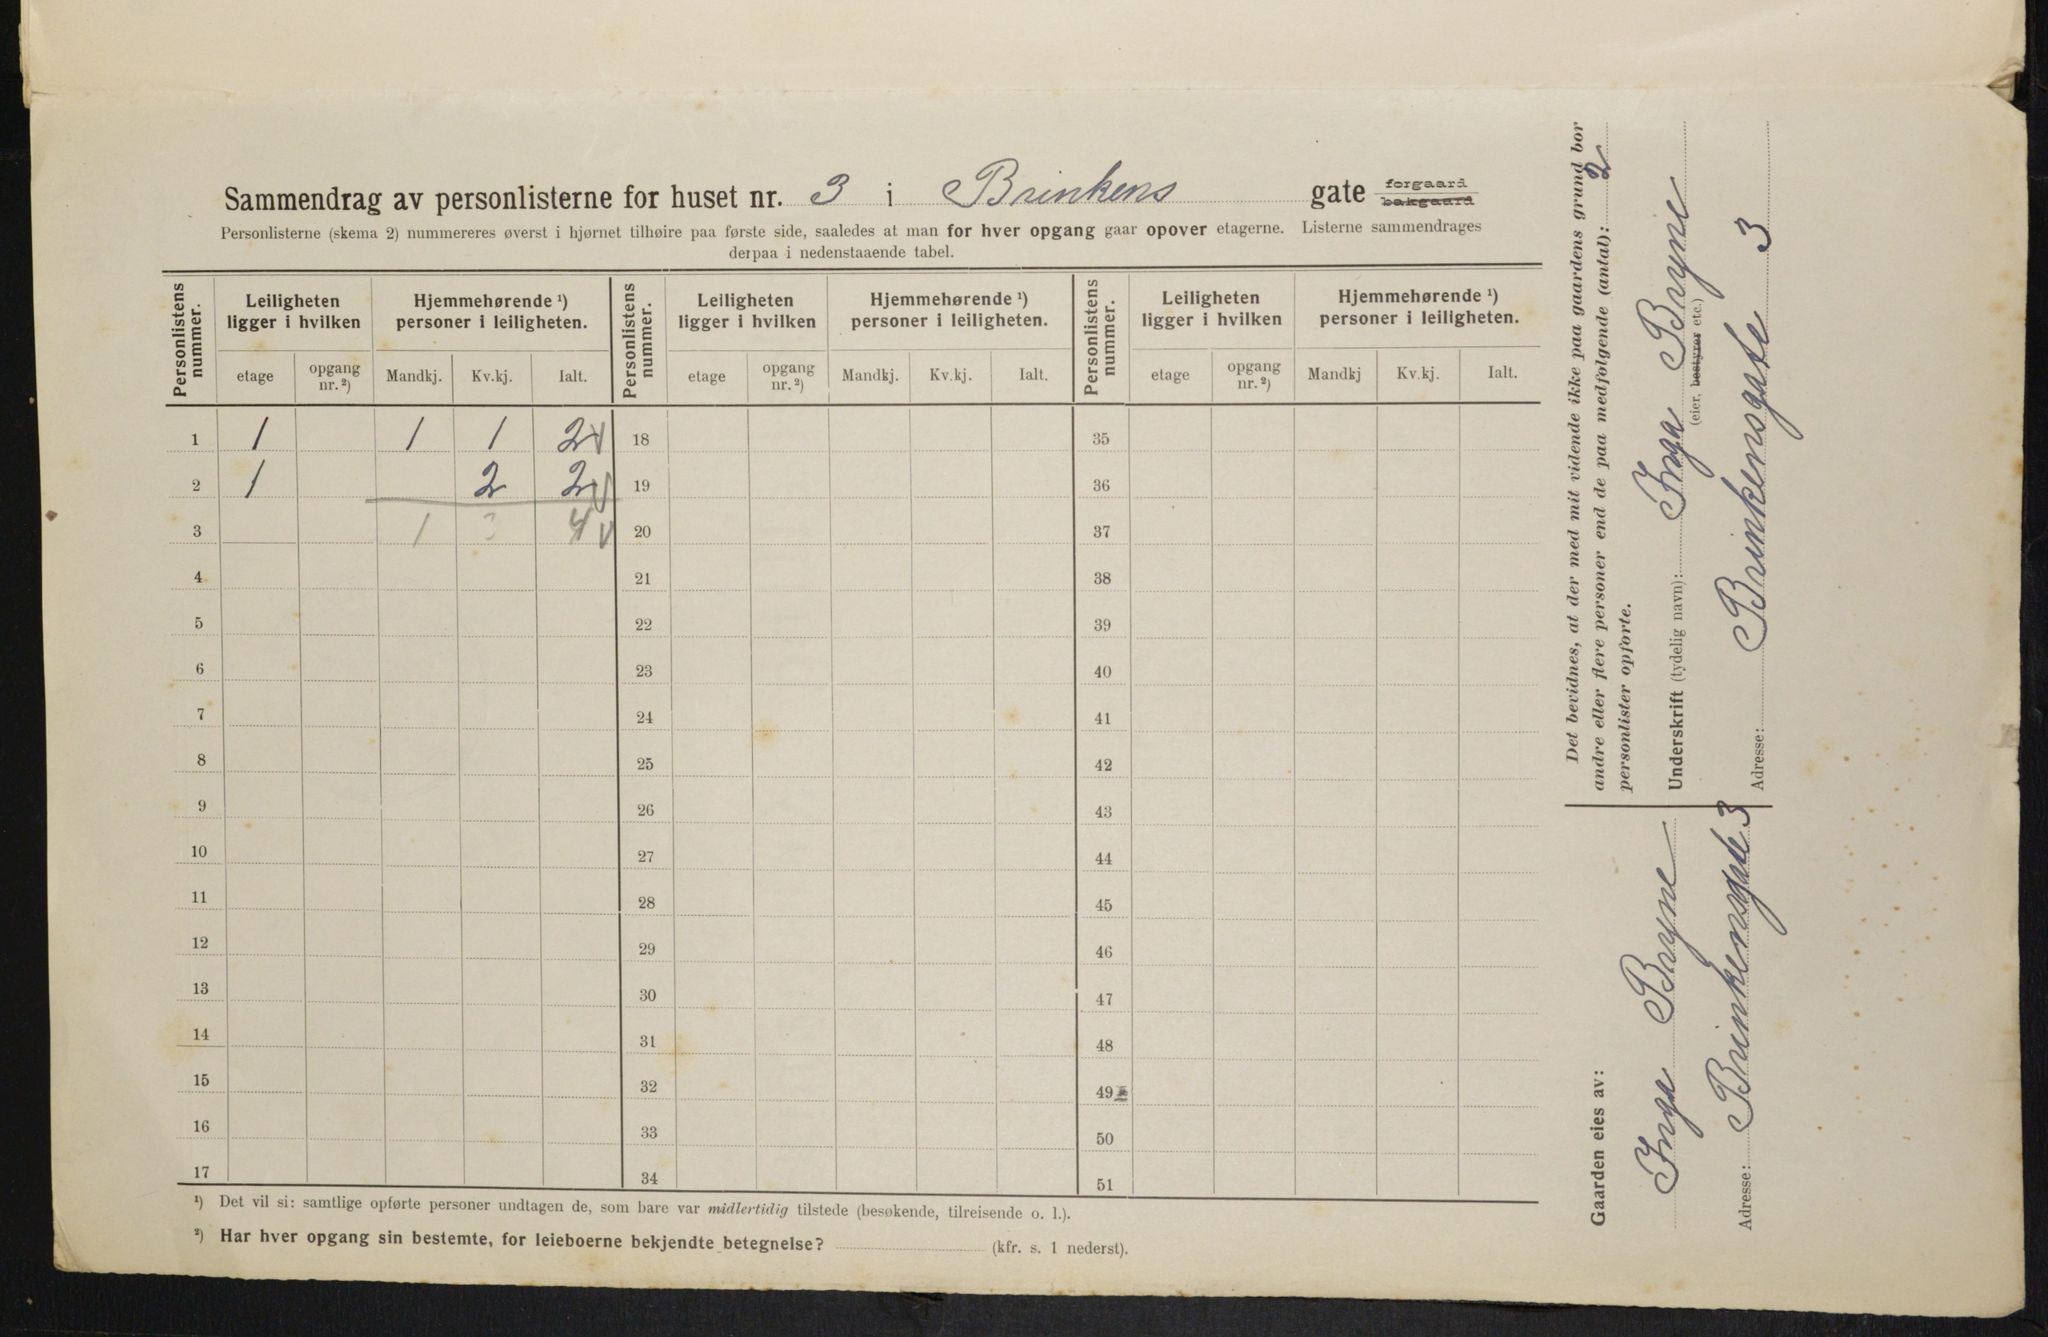 Sammendrag av personlisterne for huset nr. 3 i Brinkens gate forgaard bakgaard
Personlisterne (skema 2) nummereres øverst i hjørnet tilhøire paa første side, saaledes at man for hver opgang gaar opover etagerne. Listerne sammendrages
derpaa i nedenstaaende tabel.
Personlistens nummer. Leiligheten ligger i hvilken Hjemmehørende ¹) personer i leiligheten. Personlistens nummer. Leiligheten ligger i hvilken Hjemmehørende ¹) personer i leiligheten. Personlistens nummer. Leiligheten ligger i hvilken Hjemmehørende ¹) personer i leiligheten.
etage opgang nr. ²) Mandkj. Kv.kj. Ialt. etage opgang nr. ²) Mandkj. Kv.kj. Ialt. etage opgang nr. ²) Mandkj Kv.kj. Ialt.
1 1 1 1 2 18 35
2 1 2 2 19 36
3 1 3 4 20 37
4 21 38
5 22 39
6 23 40
7 24 41
8 25 42
9 26 43
10 27 44
11 28 45
12 29 46
13 30 47
14 31 48
15 32 49
16 33 50
17 34 51
¹) Det vil si: samtlige opførte personer undtagen de, som bare var midlertidig tilstede (besøkende, tilreisende o. l.).
²) Har hver opgang sin bestemte, for leieboerne bekjendte betegnelse? (kfr. s. 1 nederst).
Det bevidnes, at der med mit vidende ikke paa gaardens grund bor
andre eller flere personer end de paa medfølgende (antal): 2
personlister opførte.
Underskrift (tydelig navn): Inga Bryne
(eier, bestyrer etc.)
Adresse: Brinkensgate 3
Gaarden eies av:
Inga Bryne
Adresse: Brinkensgate 3